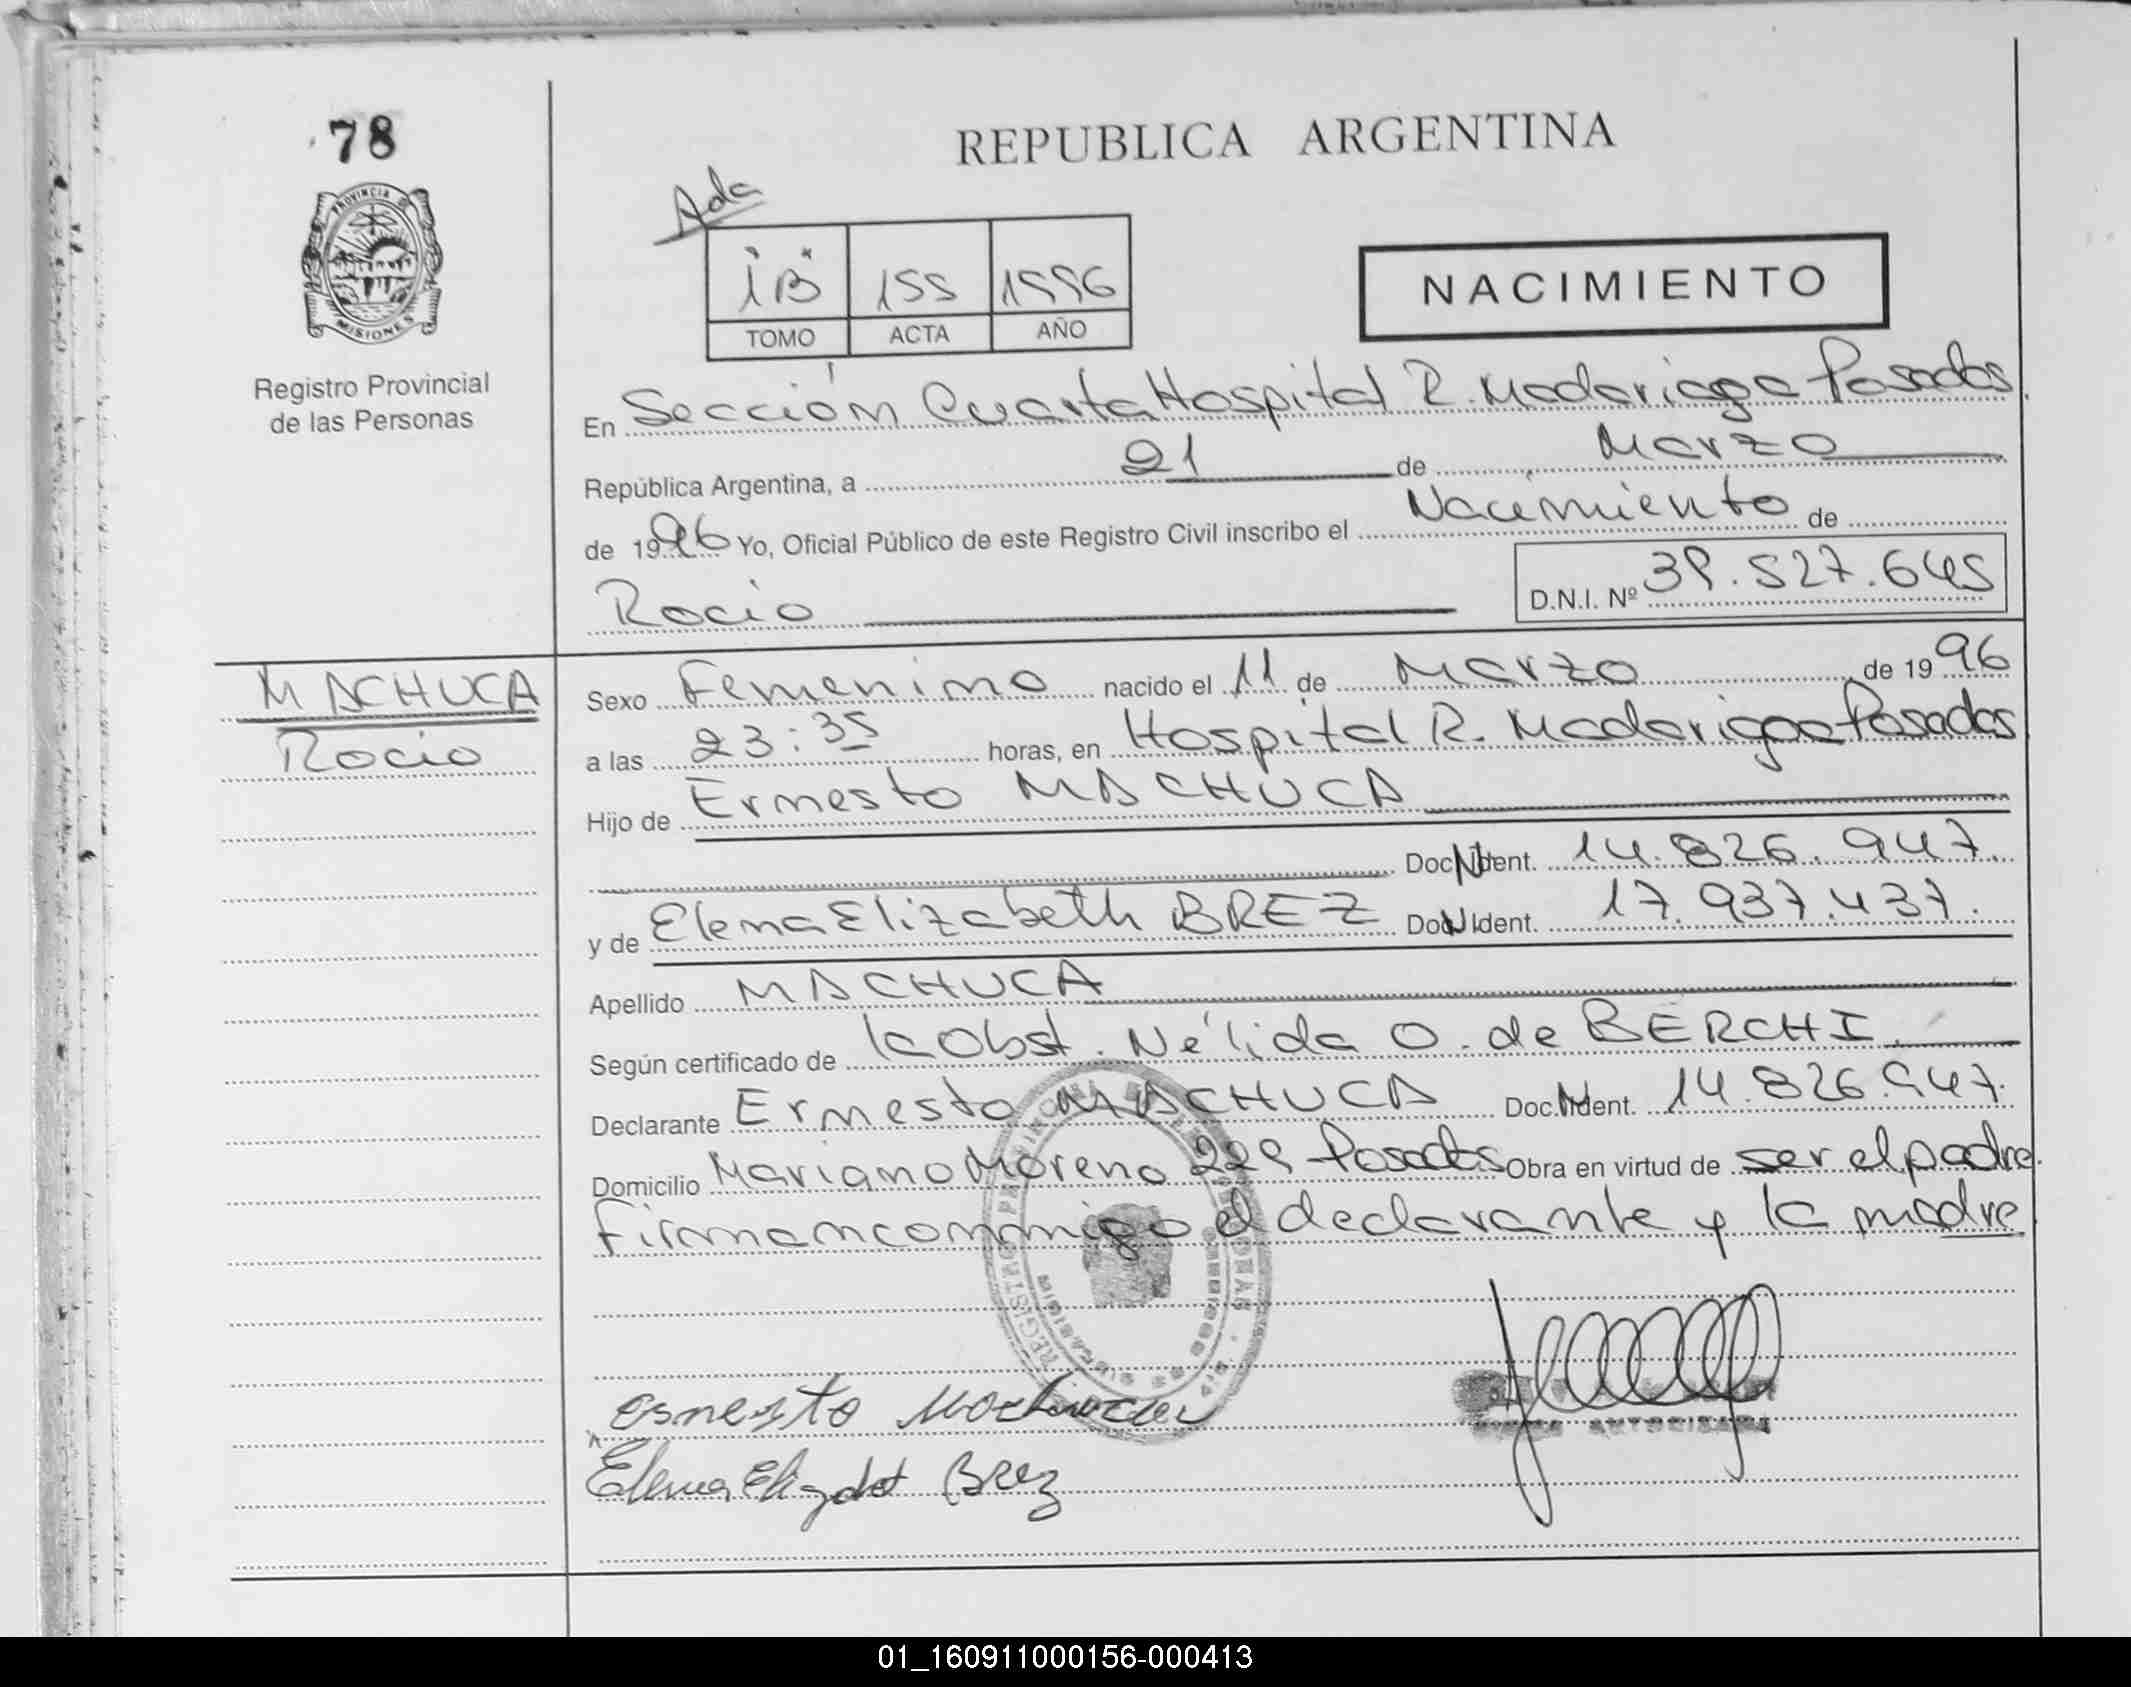 78
REPUBLICA ARGENTINA
PROVINCIA DE
MISIONES
Registro Provincial
de las Personas
Ada
1 B 155 1996
TOMO ACTA AÑO
NACIMIENTO
En Sección Cuarta Hospital R. Madariaga Posadas
República Argentina, a 21 de Marzo
de 1996 Yo, Oficial Público de este Registro Civil inscribo el Nacimiento de
Rocio D.N.I. Nº 39.527.645
MACHUCA
Rocio
Sexo Femenino nacido el 11 de Marzo de 1996
a las 23:35 horas, en Hospital R. Madariaga Posadas
Hijo de Ernesto MACHUCA
Doc. Ident. 14.826.947.
y de Elena Elizabeth BREZ Doc. Ident. 17.937.437.
Apellido MACHUCA
Según certificado de la Obst. Nélida O. de BERCHI.
Declarante Ernesto MACHUCA Doc. Ident. 14.826.947.
Domicilio Mariano Moreno 229 Posadas Obra en virtud de ser el padre.
Firman conmigo el declarante y la madre
Ernesto Machuca
Elena Elizabet Brez
FIRMA AUTORIZADA
01_160911000156-000413